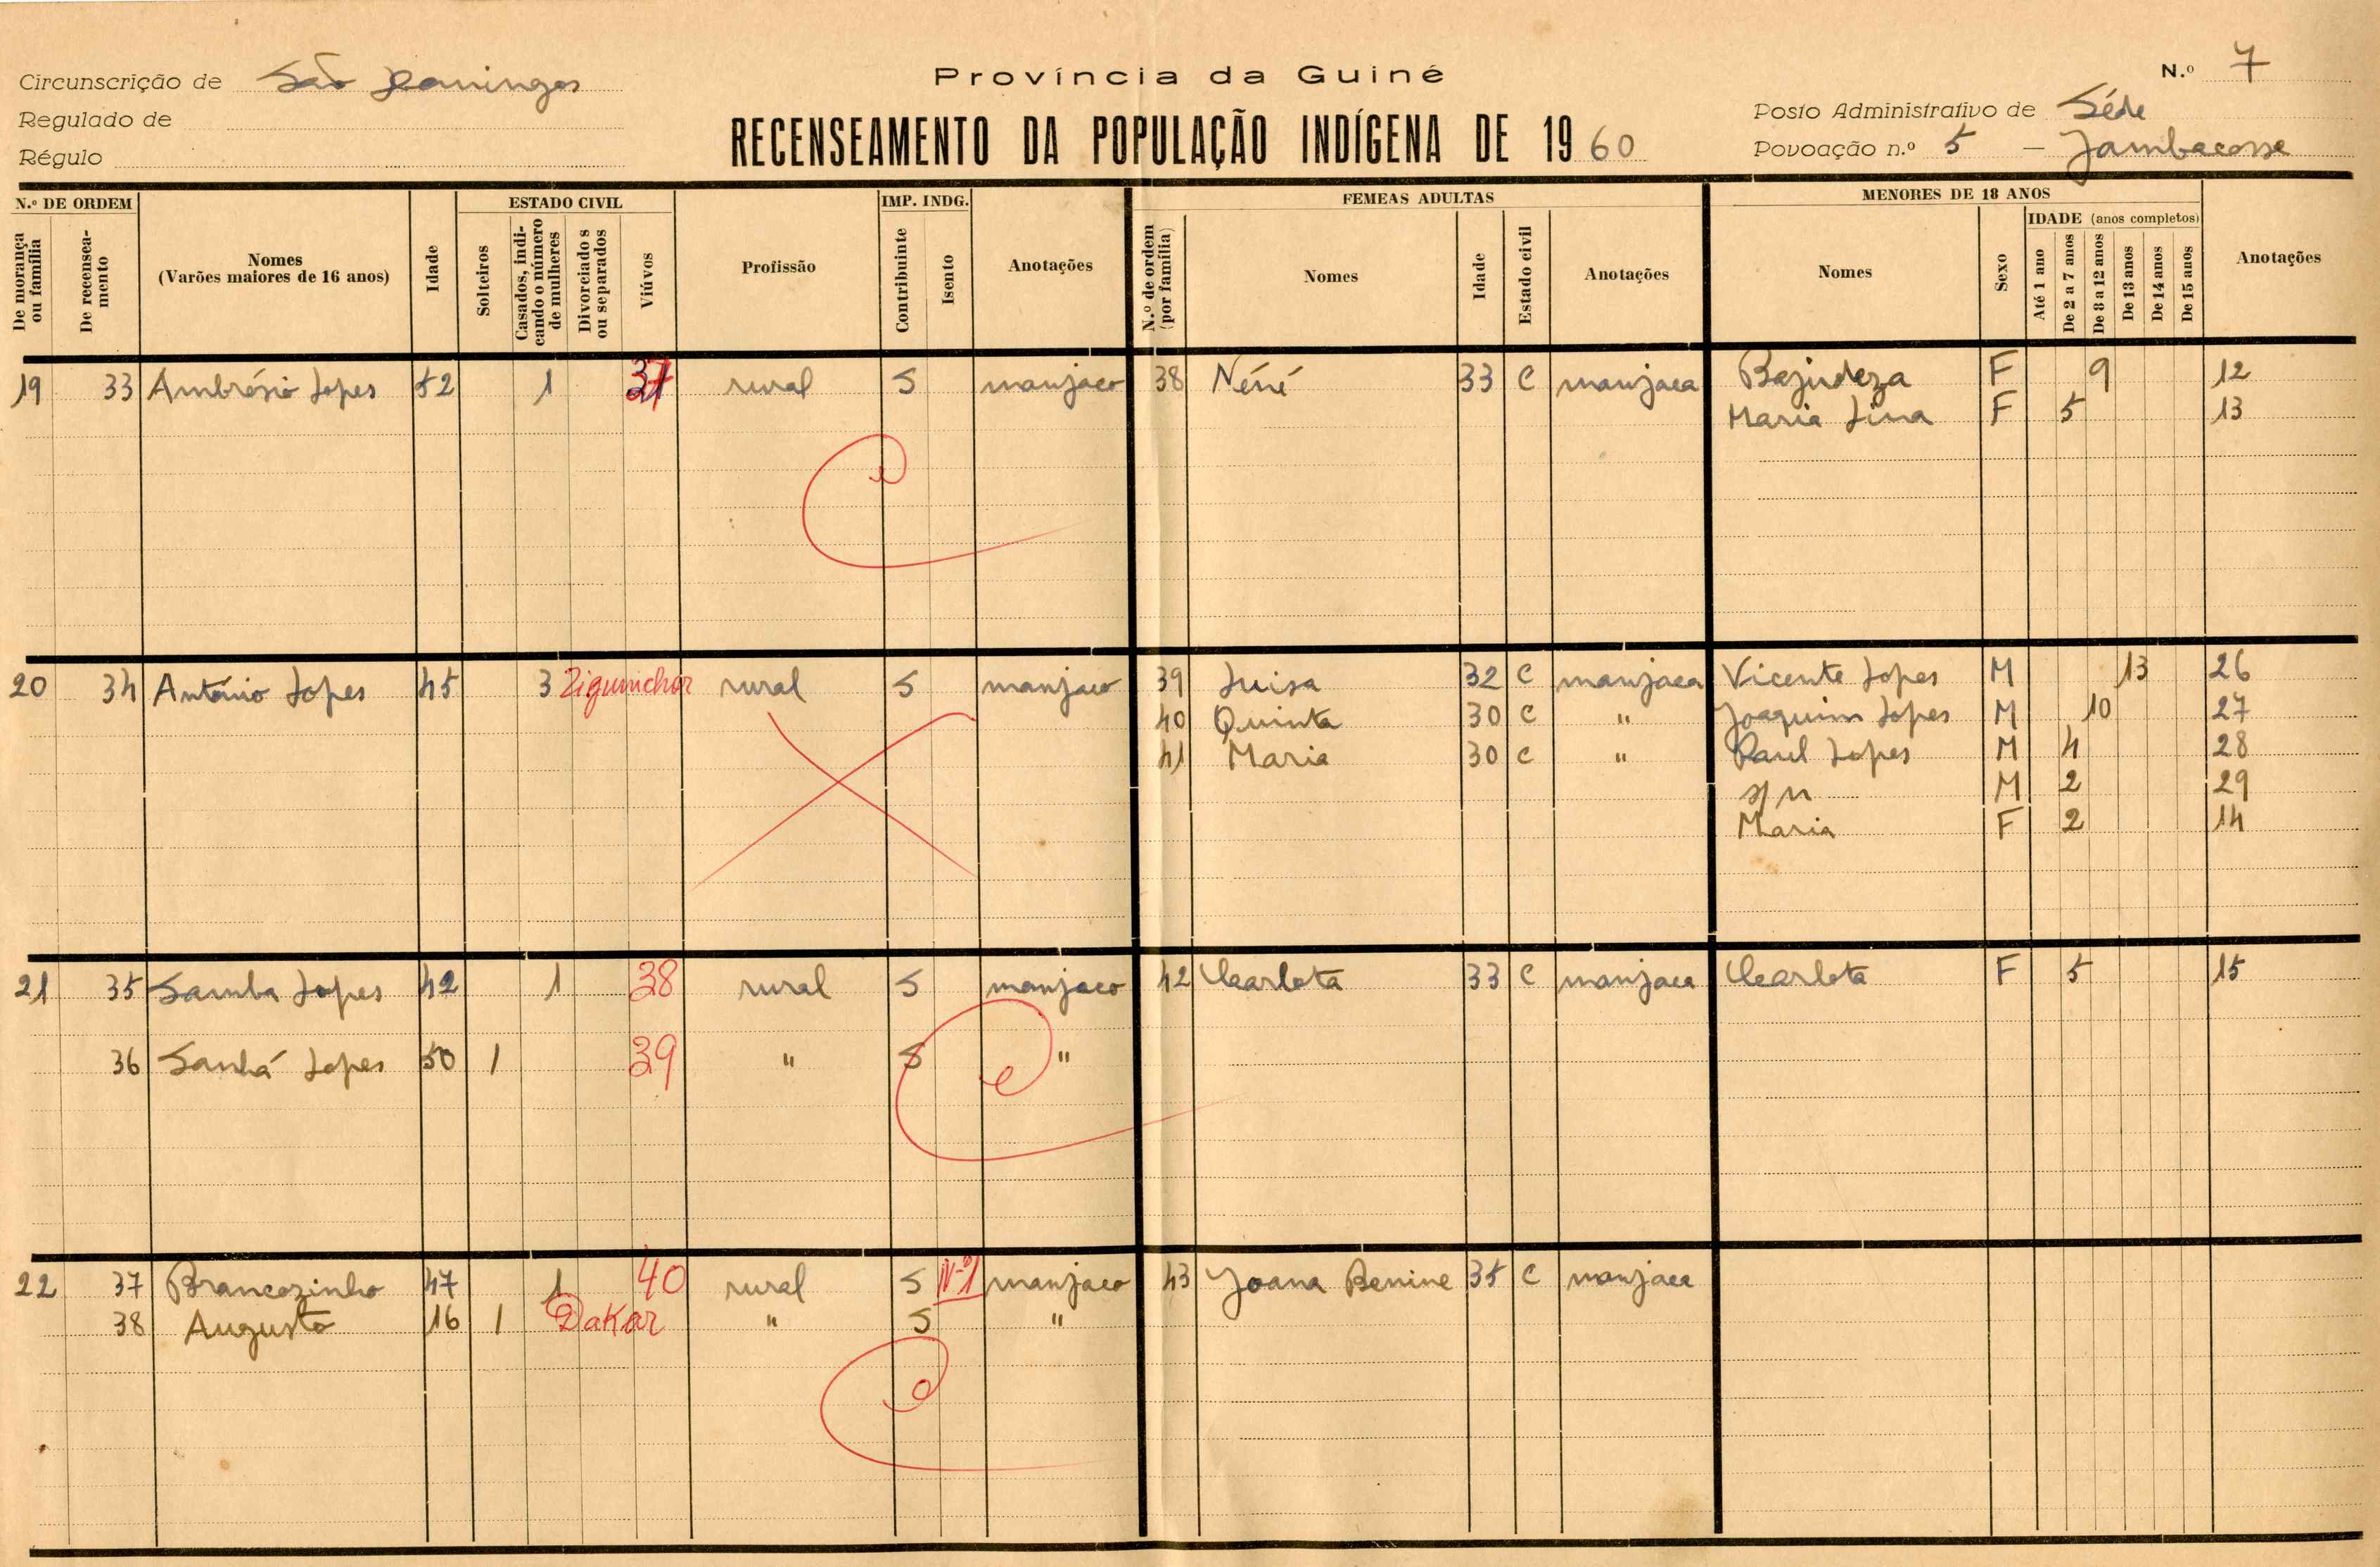 Circunscrição de São Domingos
Regulado de
Régulo
Província da Guiné
RECENSEAMENTO DA POPULAÇÃO INDÍGENA DE 1960
N.º 7
Posto Administrativo de Séde
Povoação n.º 5 – Jambacosse
N.º DE ORDEM
De morança ou família
De recenseamento
Nomes
(Varões maiores de 16 anos)
Idade
ESTADO CIVIL
Solteiros
Casados, indicando o número de mulheres
Divorciados ou separados
Viúvos
Profissão
IMP. INDG.
Contribuinte
Isento
Anotações
FEMEAS ADULTAS
N.º de ordem (por família)
Nomes
Idade
Estado civil
Anotações
MENORES DE 18 ANOS
Nomes
Sexo
IDADE (anos completos)
Até 1 ano
De 2 a 7 anos
De 8 a 12 anos
De 13 anos
De 14 anos
De 15 anos
Anotações
19 33 Ambrósio Lopes 52 1 37 rural S manjaco 38 Néné 33 C manjaca Bajudeza F 9 12
Maria Lina F 5 13
20 34 António Lopes 45 3 Ziguinchor rural S manjaco 39 Luisa 32 C manjaca Vicente Lopes M 13 26
40 Quinta 30 C " Joaquim Lopes M 10 27
41 Maria 30 C " Raul Lopes M 4 28
s/n M 2 29
Maria F 2 14
21 35 Samba Lopes 42 1 38 rural S manjaco 42 Carlota 33 C manjaca Carlota F 5 15
36 Sanhá Lopes 50 1 39 " S "
22 37 Brancozinho 47 1 40 rural S Nº1 manjaco 43 Joana Benine 35 C manjaca
38 Augusto 16 1 Dakar " S "